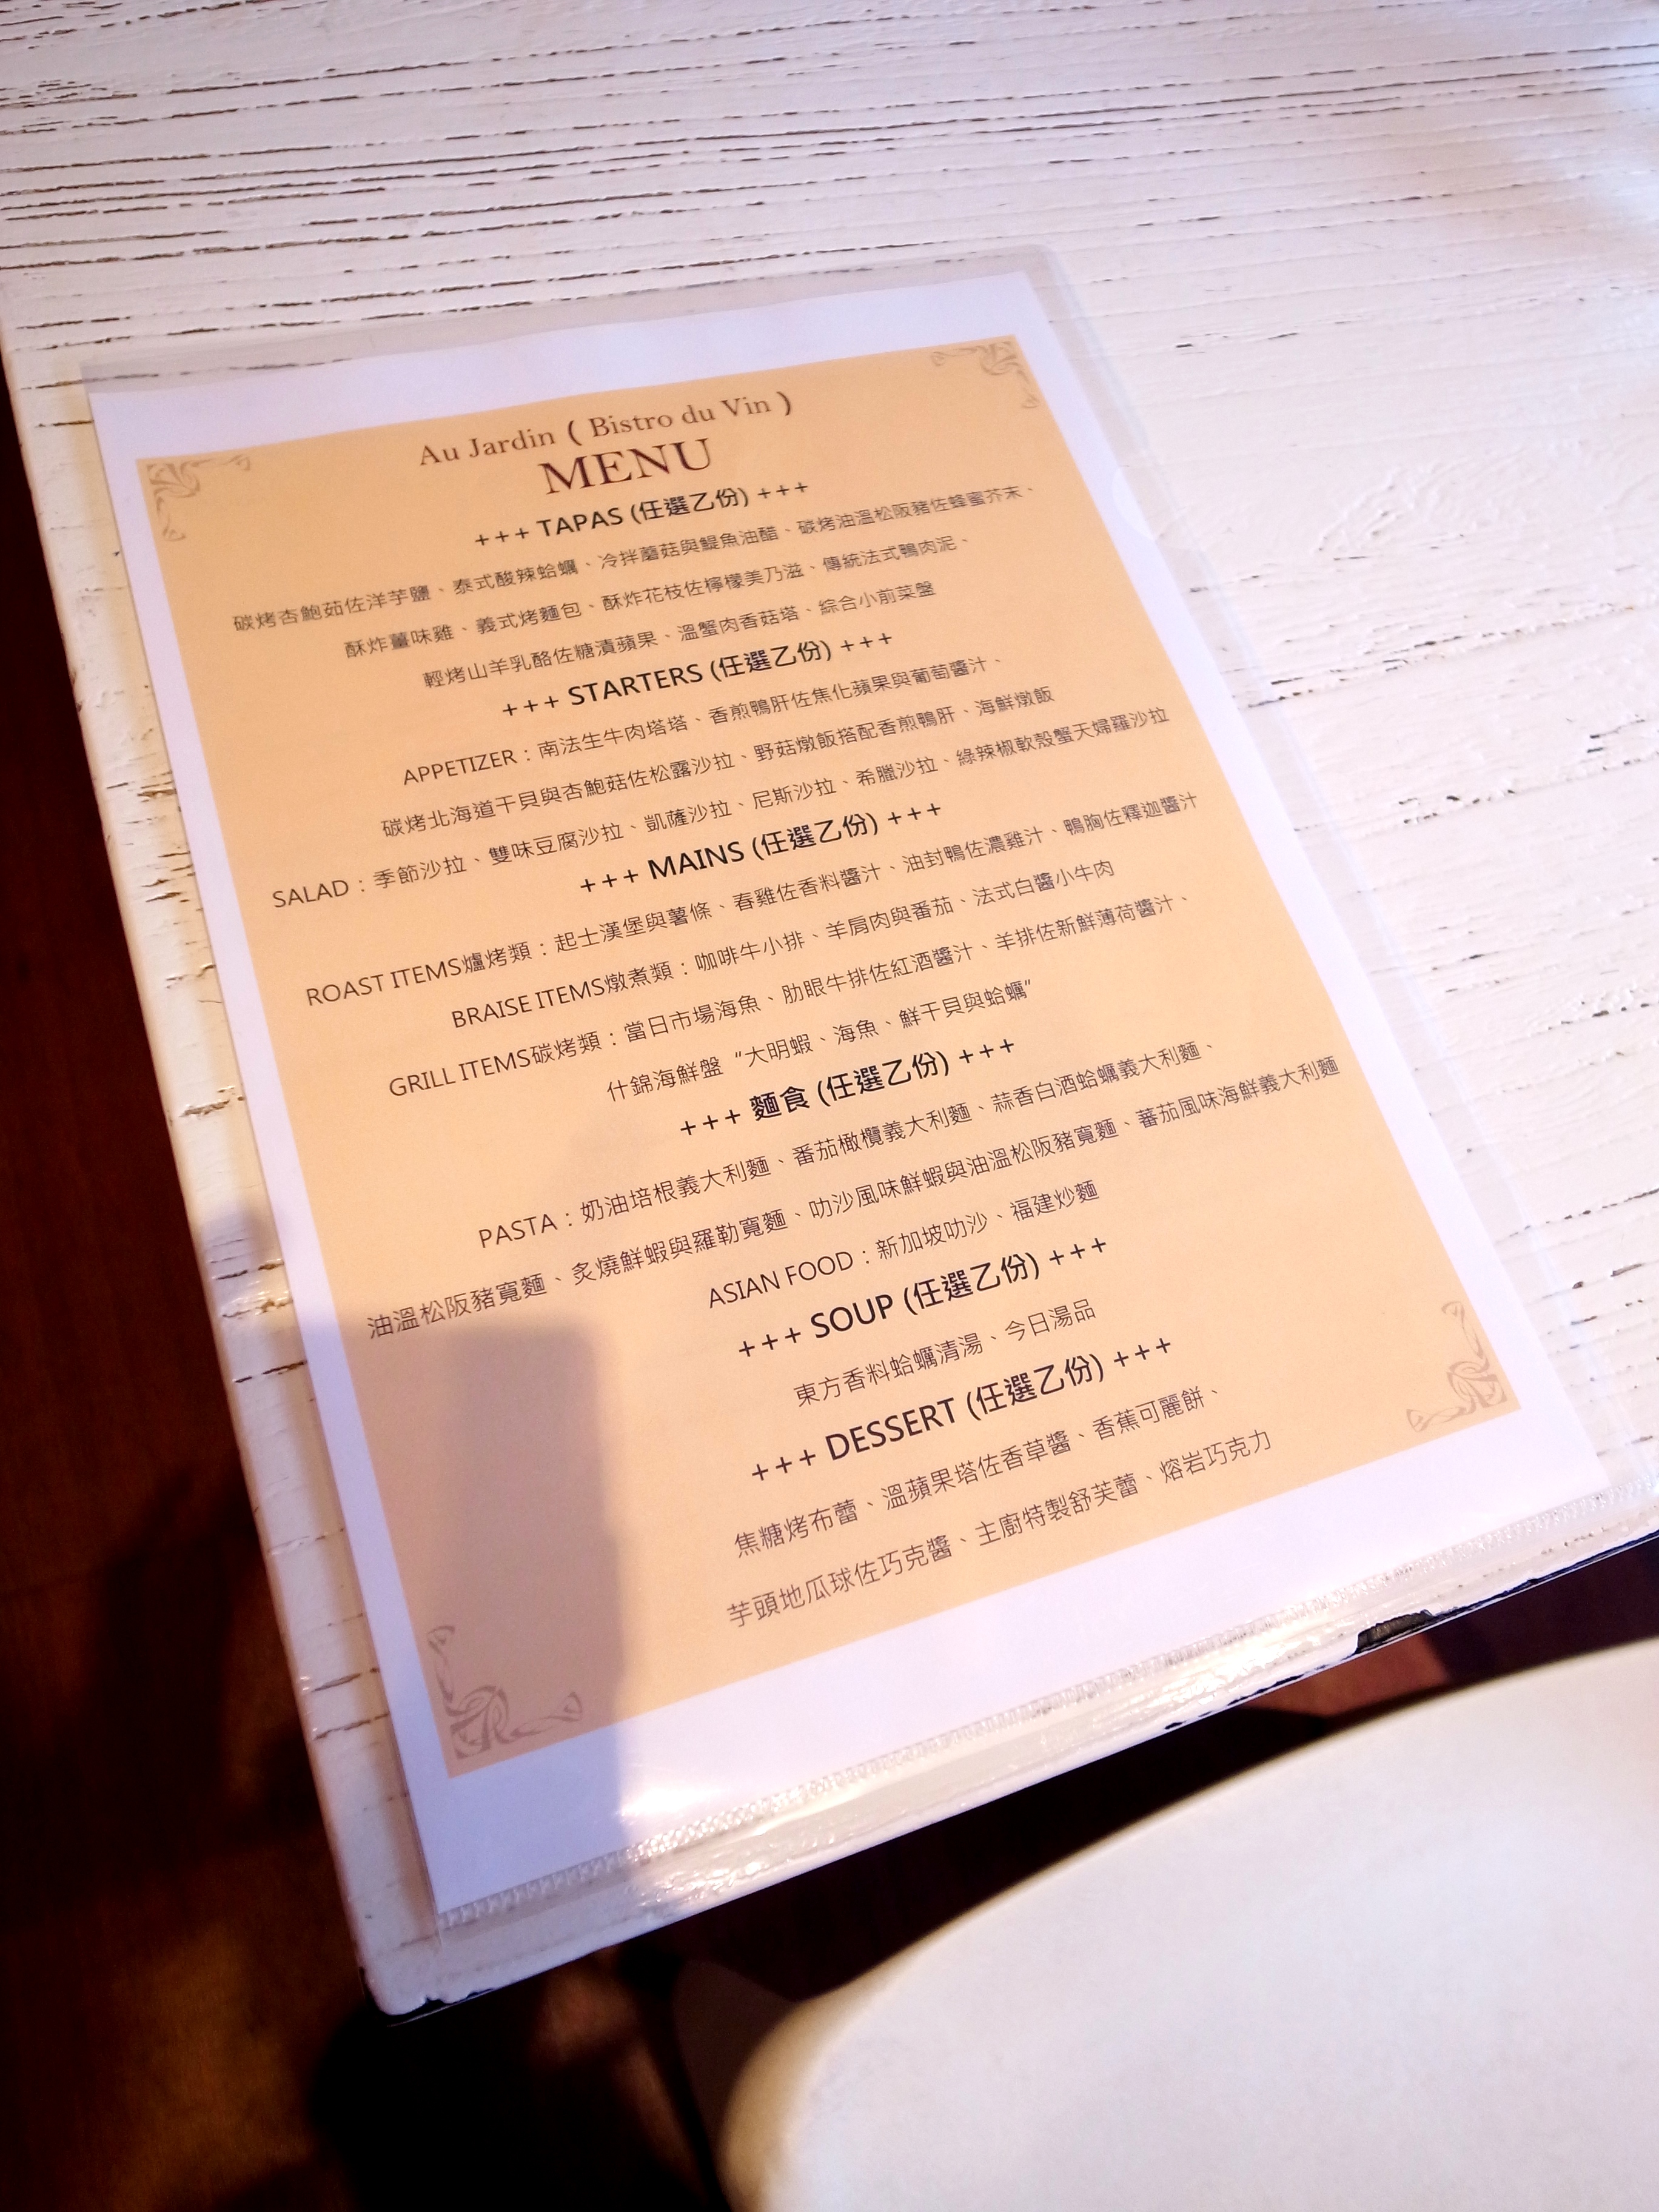 Au Jardin ( Bistro du Vin )
MENU
+++ TAPAS (任選乙份) +++
碳烤杏鮑茹佐洋芋鹽、泰式酸辣蛤蠣、冷拌蘑菇與鯷魚油醋、碳烤油溫松阪豬佐蜂蜜芥末、
酥炸薑味雞、義式烤麵包、酥炸花枝佐檸檬美乃滋、傳統法式鴨肉泥、
輕烤山羊乳酪佐糖漬蘋果、溫蟹肉香菇塔、綜合小前菜盤
+++ STARTERS (任選乙份) +++
APPETIZER：南法生牛肉塔塔、香煎鴨肝佐焦化蘋果與葡萄醬汁、
碳烤北海道干貝與杏鮑菇佐松露沙拉、野菇燉飯搭配香煎鴨肝、海鮮燉飯
SALAD：季節沙拉、雙味豆腐沙拉、凱薩沙拉、尼斯沙拉、希臘沙拉、綠辣椒軟殼蟹天婦羅沙拉
+++ MAINS (任選乙份) +++
ROAST ITEMS爐烤類：起士漢堡與薯條、春雞佐香料醬汁、油封鴨佐濃雞汁、鴨胸佐釋迦醬汁
BRAISE ITEMS燉煮類：咖啡牛小排、羊肩肉與番茄、法式白醬小牛肉
GRILL ITEMS碳烤類：當日市場海魚、肋眼牛排佐紅酒醬汁、羊排佐新鮮薄荷醬汁、
什錦海鮮盤“大明蝦、海魚、鮮干貝與蛤蠣”
+++ 麵食 (任選乙份) +++
PASTA：奶油培根義大利麵、番茄橄欖義大利麵、蒜香白酒蛤蠣義大利麵、
油溫松阪豬寬麵、炙燒鮮蝦與羅勒寬麵、叻沙風味鮮蝦與油溫松阪豬寬麵、蕃茄風味海鮮義大利麵
ASIAN FOOD：新加坡叻沙、福建炒麵
+++ SOUP (任選乙份) +++
東方香料蛤蠣清湯、今日湯品
+++ DESSERT (任選乙份) +++
焦糖烤布蕾、溫蘋果塔佐香草醬、香蕉可麗餅、
芋頭地瓜球佐巧克醬、主廚特製舒芙蕾、熔岩巧克力